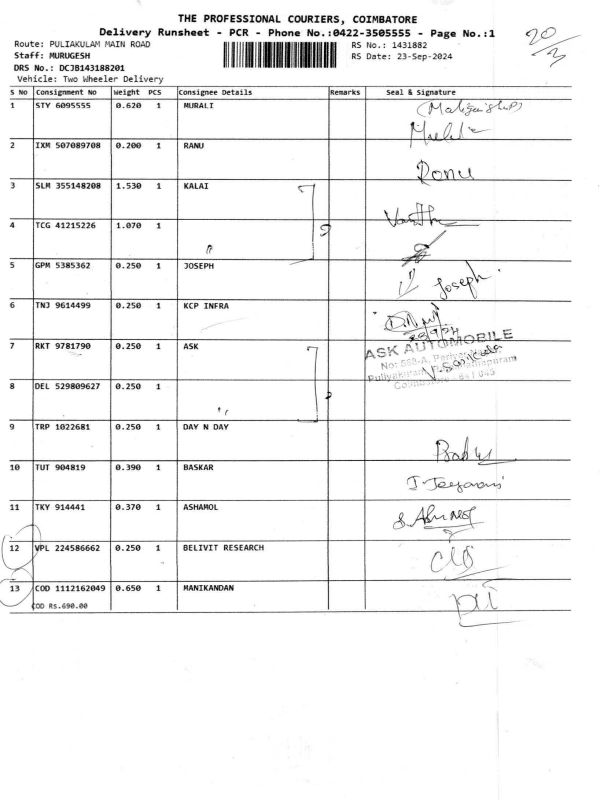 THE PROFESSIONAL COURIERS, COIMBATORE
Delivery Runsheet - PCR - Phone No.:0422-3505555 - Page No.:1
20/3
Route: PULIAKULAM MAIN ROAD
RS No.: 1431882
Staff: MURUGESH
RS Date: 23-Sep-2024
DRS No.: DCJB143188201
Vehicle: Two Wheeler Delivery
S No Consignment No Weight PCS Consignee Details Remarks Seal & Signature
1 STY 6095555 0.620 1 MURALI
2 IXM 507089708 0.200 1 RANU
Ronu
3 SLM 355148208 1.530 1 KALAI
4 TCG 41215226 1.070 1
5 GPM 5385362 0.250 1 JOSEPH
Joseph
6 TNJ 9614499 0.250 1 KCP INFRA
7 RKT 9781790 0.250 1 ASK
ASK AUTOMOBILE
8 DEL 529809627 0.250 1
9 TRP 1022681 0.250 1 DAY N DAY
10 TUT 904819 0.390 1 BASKAR
11 TKY 914441 0.370 1 ASHAMOL
12 VPL 224586662 0.250 1 BELIVIT RESEARCH
13 COD 1112162049 0.650 1 MANIKANDAN
COD Rs.690.00